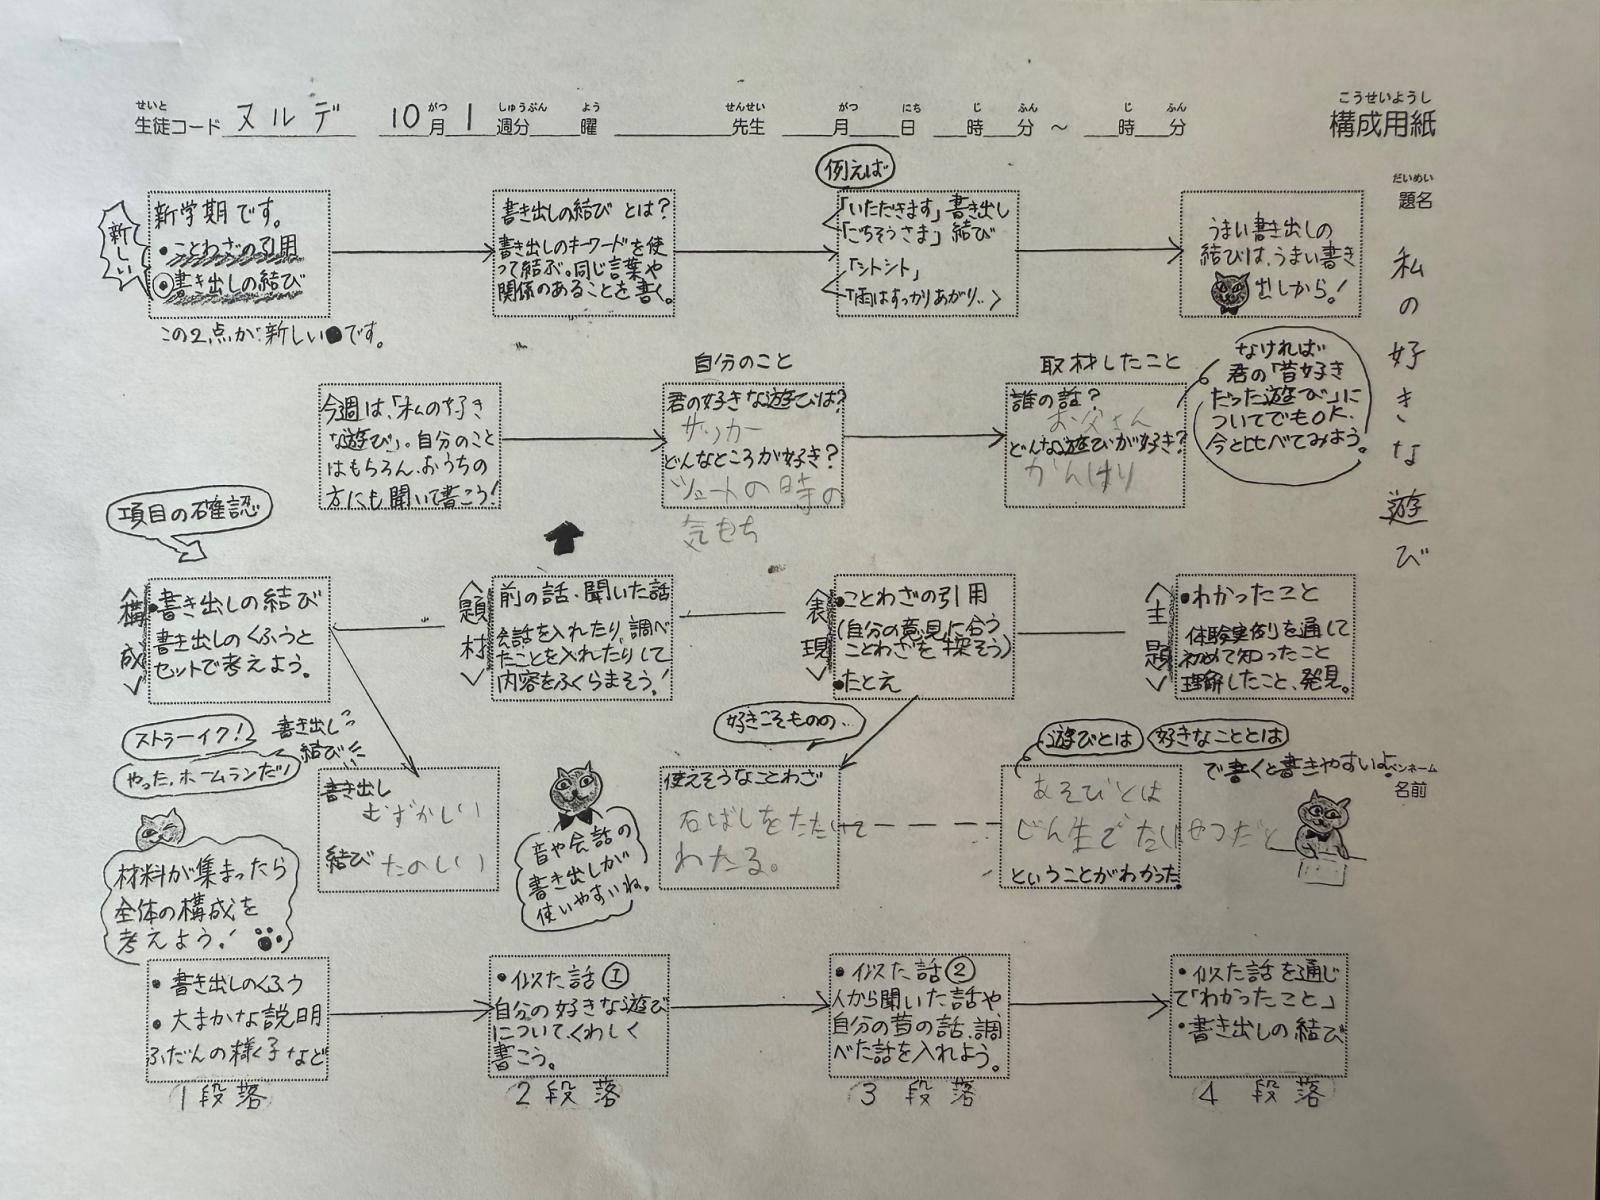 せいと
生徒コード ヌルデ 10月 1週分 曜 先生 月 日 時 分 ～ 時 分
がつ しゅうぶん よう せんせい がつ にち じ ふん じ ふん
こうせいようし
構成用紙
だいめい
題名
私の好きな遊び
新しい
新学期です。
・ことわざの引用
・書き出しの結び
この2点が新しい●です。
書き出しの結び とは？
書き出しのキーワードを使
って結ぶ。同じ言葉や
関係のあることを書く。
例えば
「いただきます」書き出し
「ごちそうさま」結び
「シトシト」
「雨はすっかりあがり‥
うまい書き出しの
結びは、うまい書き
出しから！
今週は、「私の好き
な遊び」。自分のこと
はもちろん、おうちの
方にも聞いて書こう！
自分のこと
君の好きな遊びは？
サッカー
どんなところが好き？
シュートの時の
気もち
取材したこと
誰の話？
お父さん
どんな遊びが好き？
なければ
君の「昔好き
だった遊び」に
ついてでもOK.
今と比べてみよう。
項目の確認
〈構成〉
・書き出しの結び
書き出しのくふうと
セットで考えよう。
〈題材〉
前の話・聞いた話
会話を入れたり、調べ
たことを入れたりして
内容をふくらまそう！
〈表現〉
・ことわざの引用
(自分の意見に合う
ことわざを探そう)
・たとえ
〈主題〉
・わかったこと
体験実例を通して
初めて知ったこと
理解したこと、発見。
ストラーイク！
書き出し
結び
やった、ホームランだ！
書き出し
むずかしい
結び たのしい
音や会話の
書き出しが
使いやすいね。
好きこそものの‥
使えそうなことわざ
石ばしをたたいて
わたる。
遊びとは
好きなこととは
で書くと書きやすいよ。
あそびとは
じん生でたいせつだと
ということがわかった。
ペンネーム
名前
材料が集まったら
全体の構成を
考えよう！
・書き出しのくふう
・大まかな説明
ふだんの様子など
1段落
・似た話①
自分の好きな遊び
について、くわしく
書こう。
2段落
・似た話②
人から聞いた話や、
自分の昔の話、調
べた話を入れよう。
3段落
・似た話を通じ
て「わかったこと」
・書き出しの結び
4段落